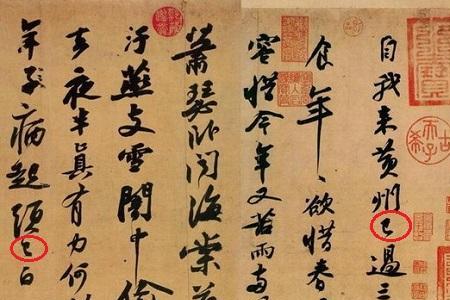 自我来黄州已過三
食年〻欲惜春
容惜今年又苦雨兩
蕭瑟卧聞海棠花
汙燕支雪闇中偷
去夜半真有力何
年子病起頭已白
古希天子